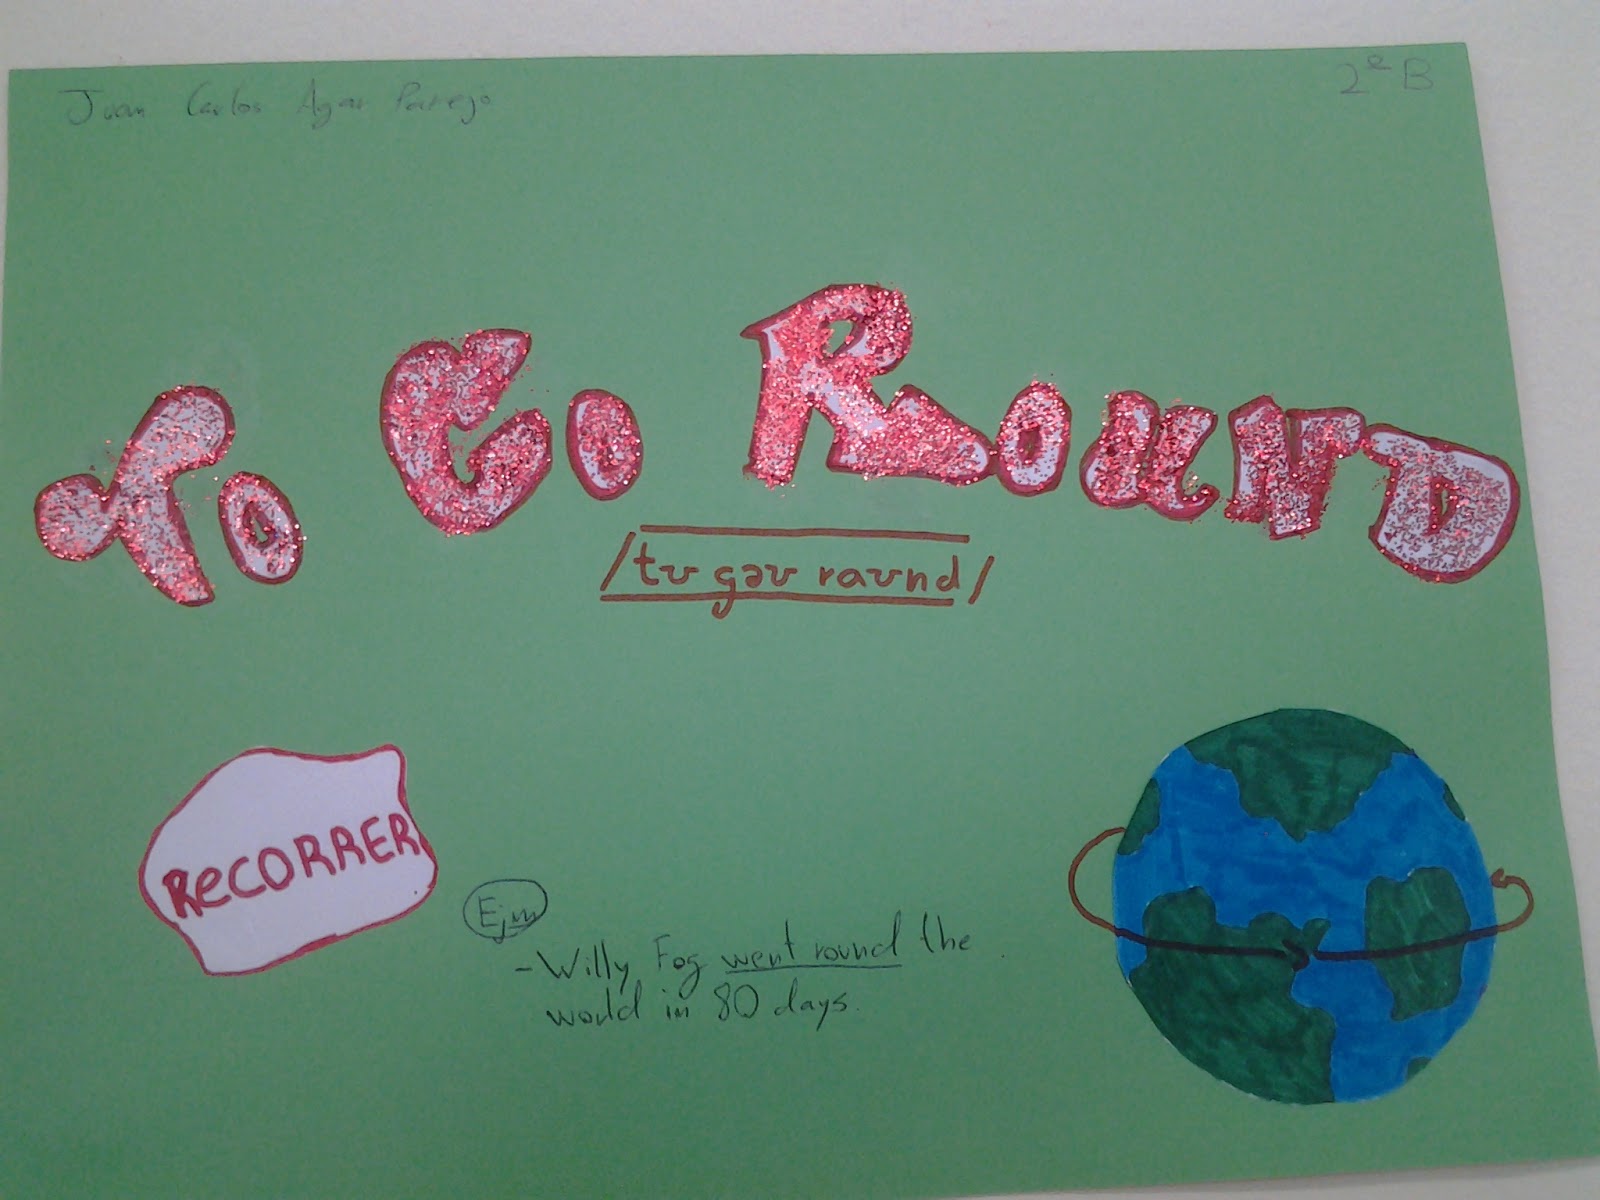 Juan Carlos Agar Parejo
2º B
To Go Round
/tʊ gəʊ raʊnd/
RECORRER
Ejm
- Willy Fog went round the
world in 80 days.